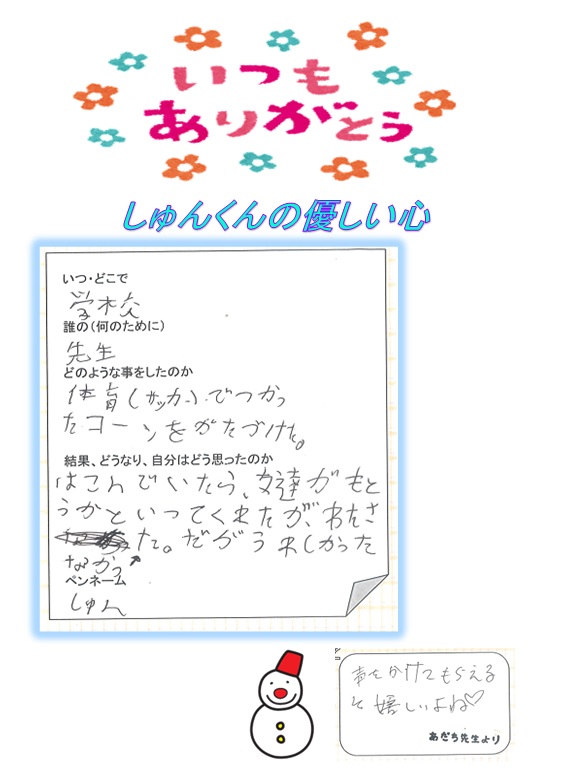 いつも
ありがとう
しゅんくんの優しい心
いつ・どこで
学校
誰の(何のために)
先生
どのような事をしたのか
体育(サッカー)でつかっ
たコーンをかたづけた。
結果、どうなり、自分はどう思ったのか
はこんでいたら、友達がもと
うかといってくれたが、わたさ
た。だがうれしかった
なかっ
ペンネーム
しゅん
声をかけてもらえる
と嬉しいよね♡
あだち先生より